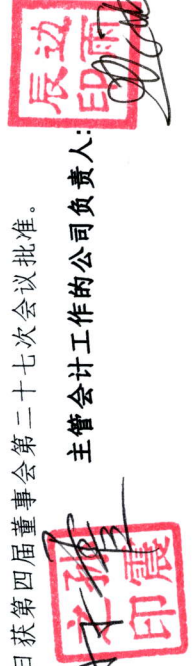 日获第四届董事会第二十七次会议批准。
主管会计工作的公司负责人:
辰边
印雨
之孙
印震